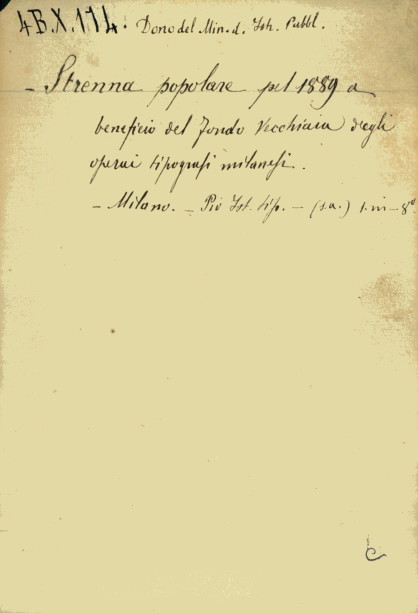 4B.X.114. Dono del Min. d. Istr. Pubbl.
- Strenna popolare pel 1889 a
beneficio del Fondo Vecchiaia degli
operai tipografi milanesi.
- Milano. - Pio Ist. tip. - (s.a.) 1. in - 8º
C